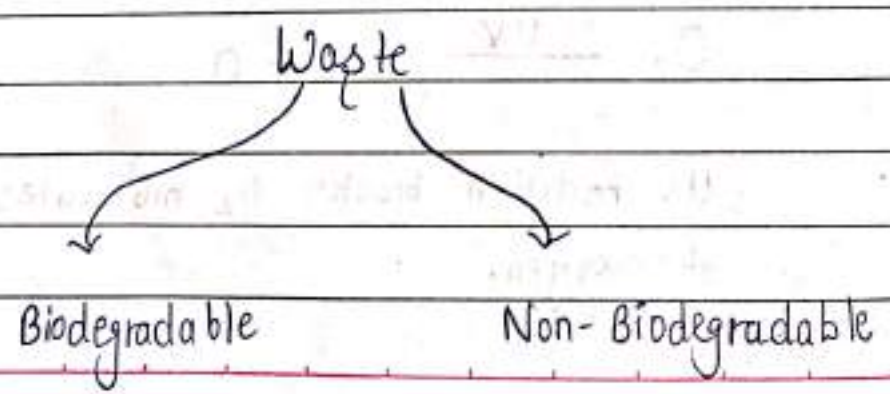 Waste
Biodegradable Non-Biodegradable